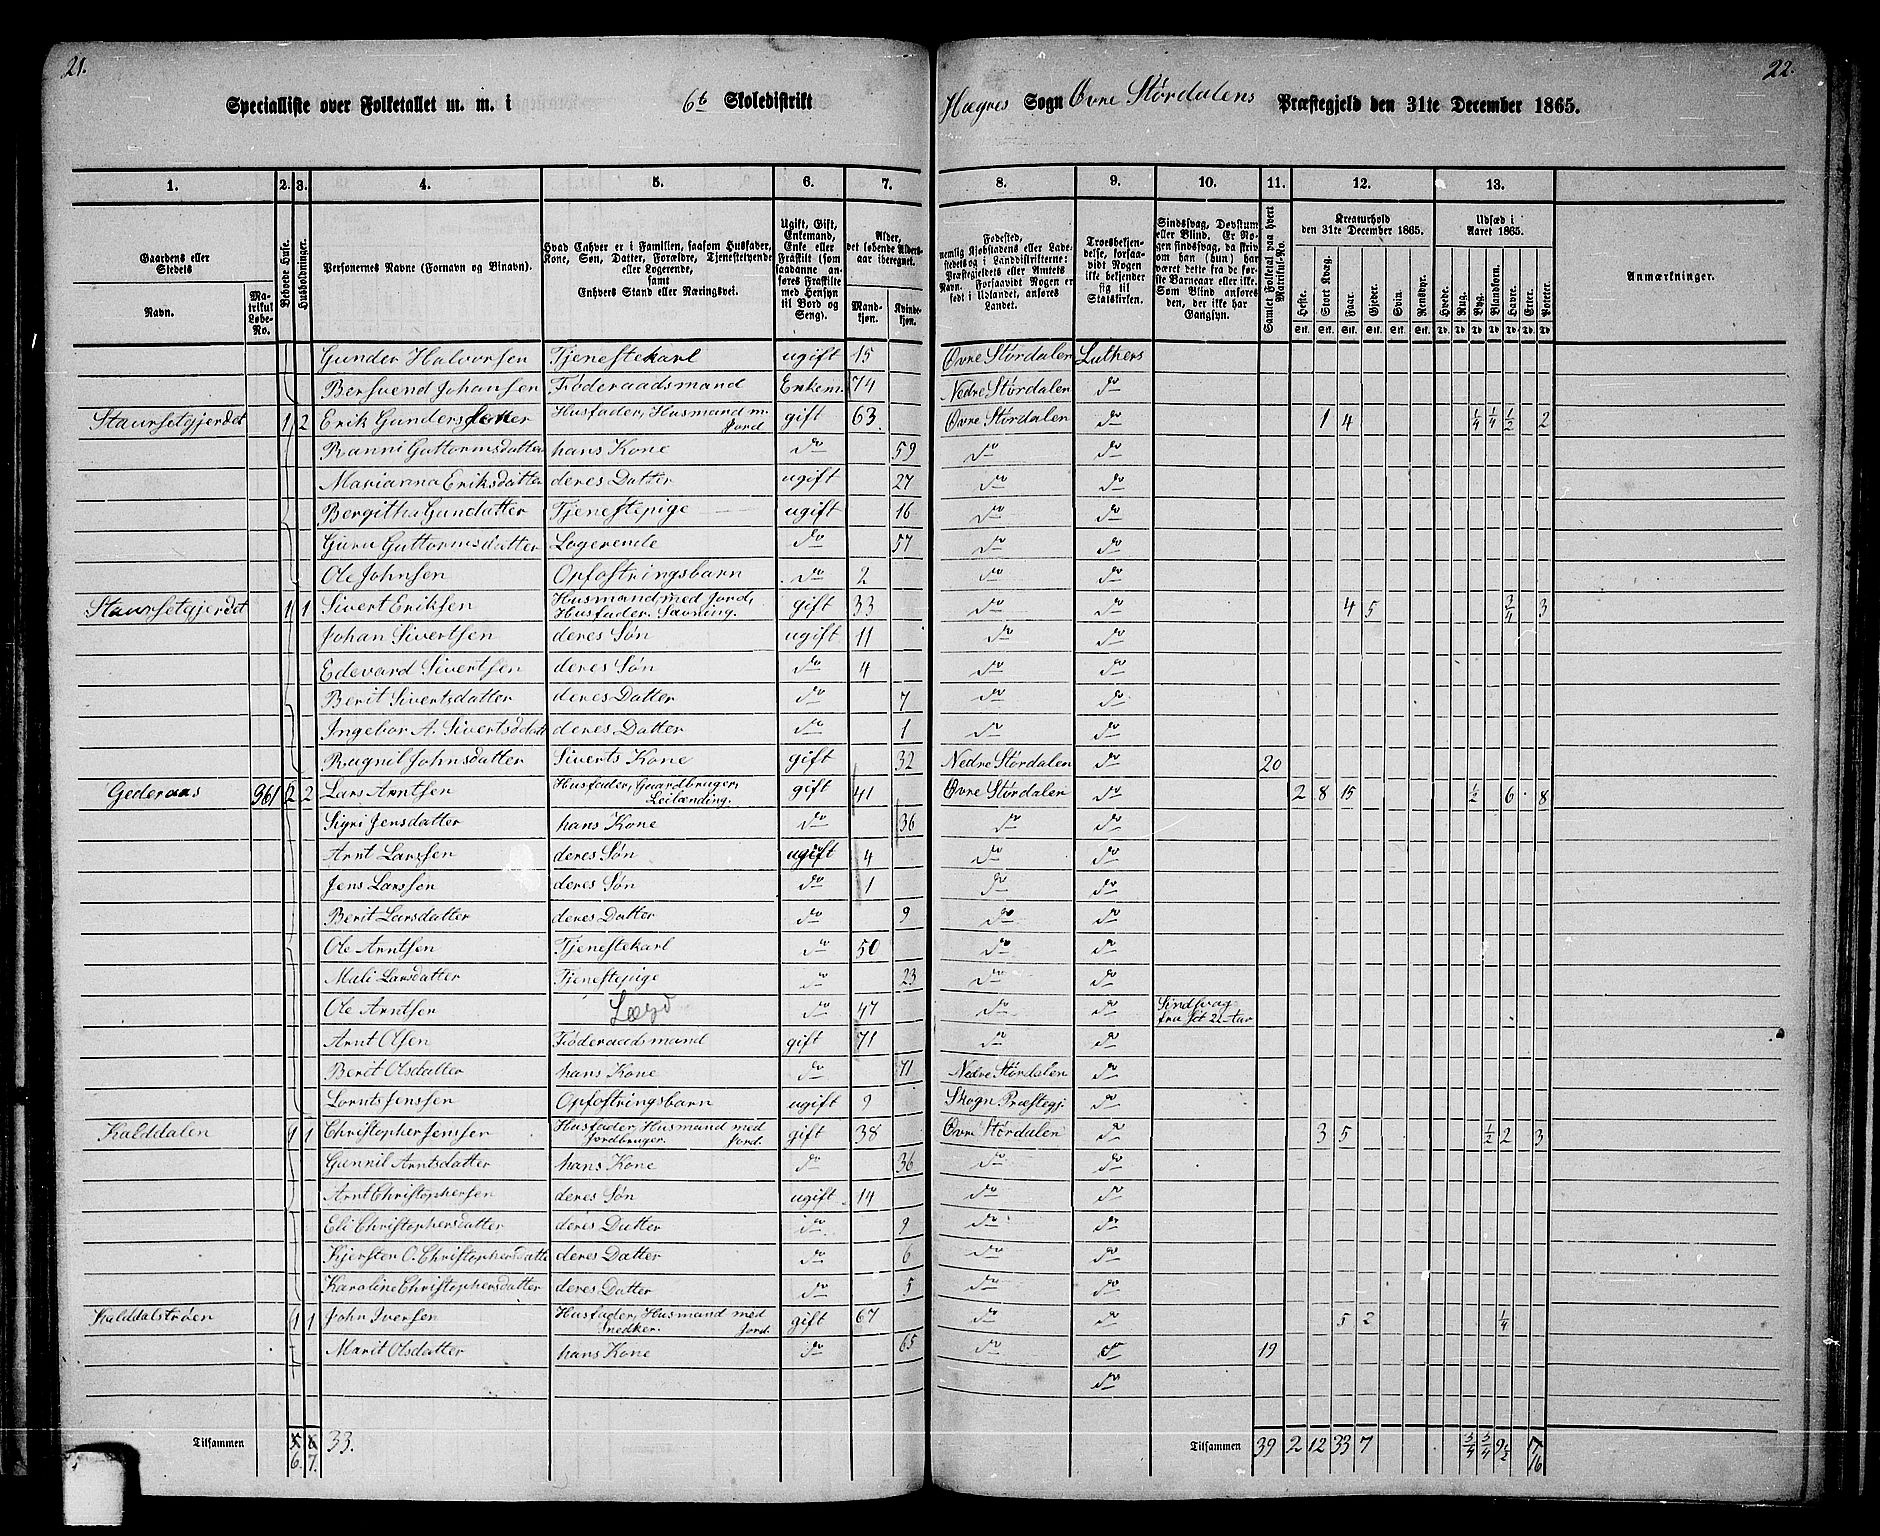 21.
22.
Specialliste over Folketallet m. m. i 6te Skoledistrikt Hegres Sogn Øvre Størdalens Præstegjeld den 31te December 1865.
1. 2. 3. 4. 5. 6. 7. 8. 9. 10. 11. 12. 13.
Gaardens eller Stedets
Navn.
Matrikul Løbe-No.
Beboede Huse.
Husholdninger.
Personernes Navne (Fornavn og Binavn).
Hvad Enhver er i Familien, saasom Husfader, Kone, Søn, Datter, Forældre, Tjenestetyende eller Logerende, samt Enhvers Stand eller Næringsvei.
Ugift, Gift, Enkemand, Enke eller Fraskilt (som saadanne anføres Fraskilte med Hensyn til Bord og Seng).
Alder, det løbende Alders-aar iberegnet.
Mandkjøn.
Kvindekjøn.
Fødested, nemlig Kjøbstadens eller Ladestedets og i Landdistrikterne: Præstegjeldets eller Amtets Navn. Forsaavidt Nogen er født i Udlandet, anføres Landet.
Troesbekjendelse, forsaavidt Nogen ikke bekjender sig til Statskirken.
Sindssvag, Døvstum eller Blind. Er Nogen sindssvag, da skrives om han (hun) har været dette fra de første Barneaar eller ikke. Som Blind anføres den, der ikke har Gangsyn.
Samlet Folketal paa hvert Matrikul-No.
Kreaturhold den 31te December 1865.
Heste. Stort Kvæg. Faar. Gjeder. Svin. Rensdyr.
Udsæd i Aaret 1865.
Hvede. Rug. Byg. Blandkorn. Havre. Erter. Poteter.
Anmærkninger.
Gunder Halvorsen Tjenestekarl ugift 15 Øvre Størdalen Luthers
Bersvend Johansen Føderaadsmand Enkem. 74 Nedre Størdalen do
Staursetgjerdet 1 2 Erik Gunders Husfader, Husmand m. Jord gift 63 Øvre Størdalen do 1 4 1/4 1/4 1/2 2
Ranni Guttormsdatter hans Kone do 59 do do
Marianna Eriksdatter deres Datter ugift 27 do do
Bergitha Gundatter Tjenestepige ugift 16 do do
Guru Guttormsdatter Logerende do 57 do do
Ole Johnsen Opfostringsbarn do 2 do do
Staursetgjerdet 1 1 Sivert Eriksen Husmand med Jord, Husfader. gift 33 do do 4 5 3/4 3
Johan Sivertsen deres Søn ugift 11 do do
Edevard Sivertsen deres Søn do 4 do do
Berit Sivertsdatter deres Datter do 7 do do
Ingebor A. Sivertsdatt deres Datter do 1 do do
Rugnil Johnsdatter Siverts Kone gift 32 Nedre Størdalen do 20
Gederaas 961 2 2 Lars Arntsen Husfader, Gaardbruger, Leilænding. gift 41 Øvre Størdalen do 2 8 15 1/2 6 8
Sigri Jensdatter hans Kone do 36 do do
Arnt Larssen deres Søn ugift 4 do do
Jens Larssen deres Søn do 1 do do
Berit Larsdatter deres Datter do 9 do do
Ole Arntsen Tjenestekarl do 50 do do
Mali Larsdatter Tjenestepige do 23 do do
Ole Arntsen Lægd do 47 do do Sindsvag fra sit 22 Aar
Arnt Olsen Føderaadsmand gift 71 do do
Berit Olsdatter hans Kone do 71 Nedre Størdalen do
Lornts Jenssen Opfostringsbarn ugift 9 Skogn Præstegj. do
Kalddalen 1 1 Christopher Jenssen Husfader, Husmand med Jord. Jordbruger. gift 38 Øvre Størdalen do 3 5 1/2 2 3
Gunnil Arntsdatter hans Kone do 36 do do
Arnt Christophersen deres Søn ugift 14 do do
Eli Christophersdatter deres Datter do 9 do do
Kjersten O. Christophersdatte deres Datter do 6 do do
Karoline Christophersdatter deres Datter do 5 do do
Kalddalstrøen 1 1 John Iversen Husfader, Husmand med Jord. Snedker. gift 67 do do 5 2 1/4
Marit Olsdatter hans Kone do 65 do do 19
do
Tilsammen 6. 7. 33. Tilsammen 39 2 12 33 7 3/4 3/4 9 1/2 16